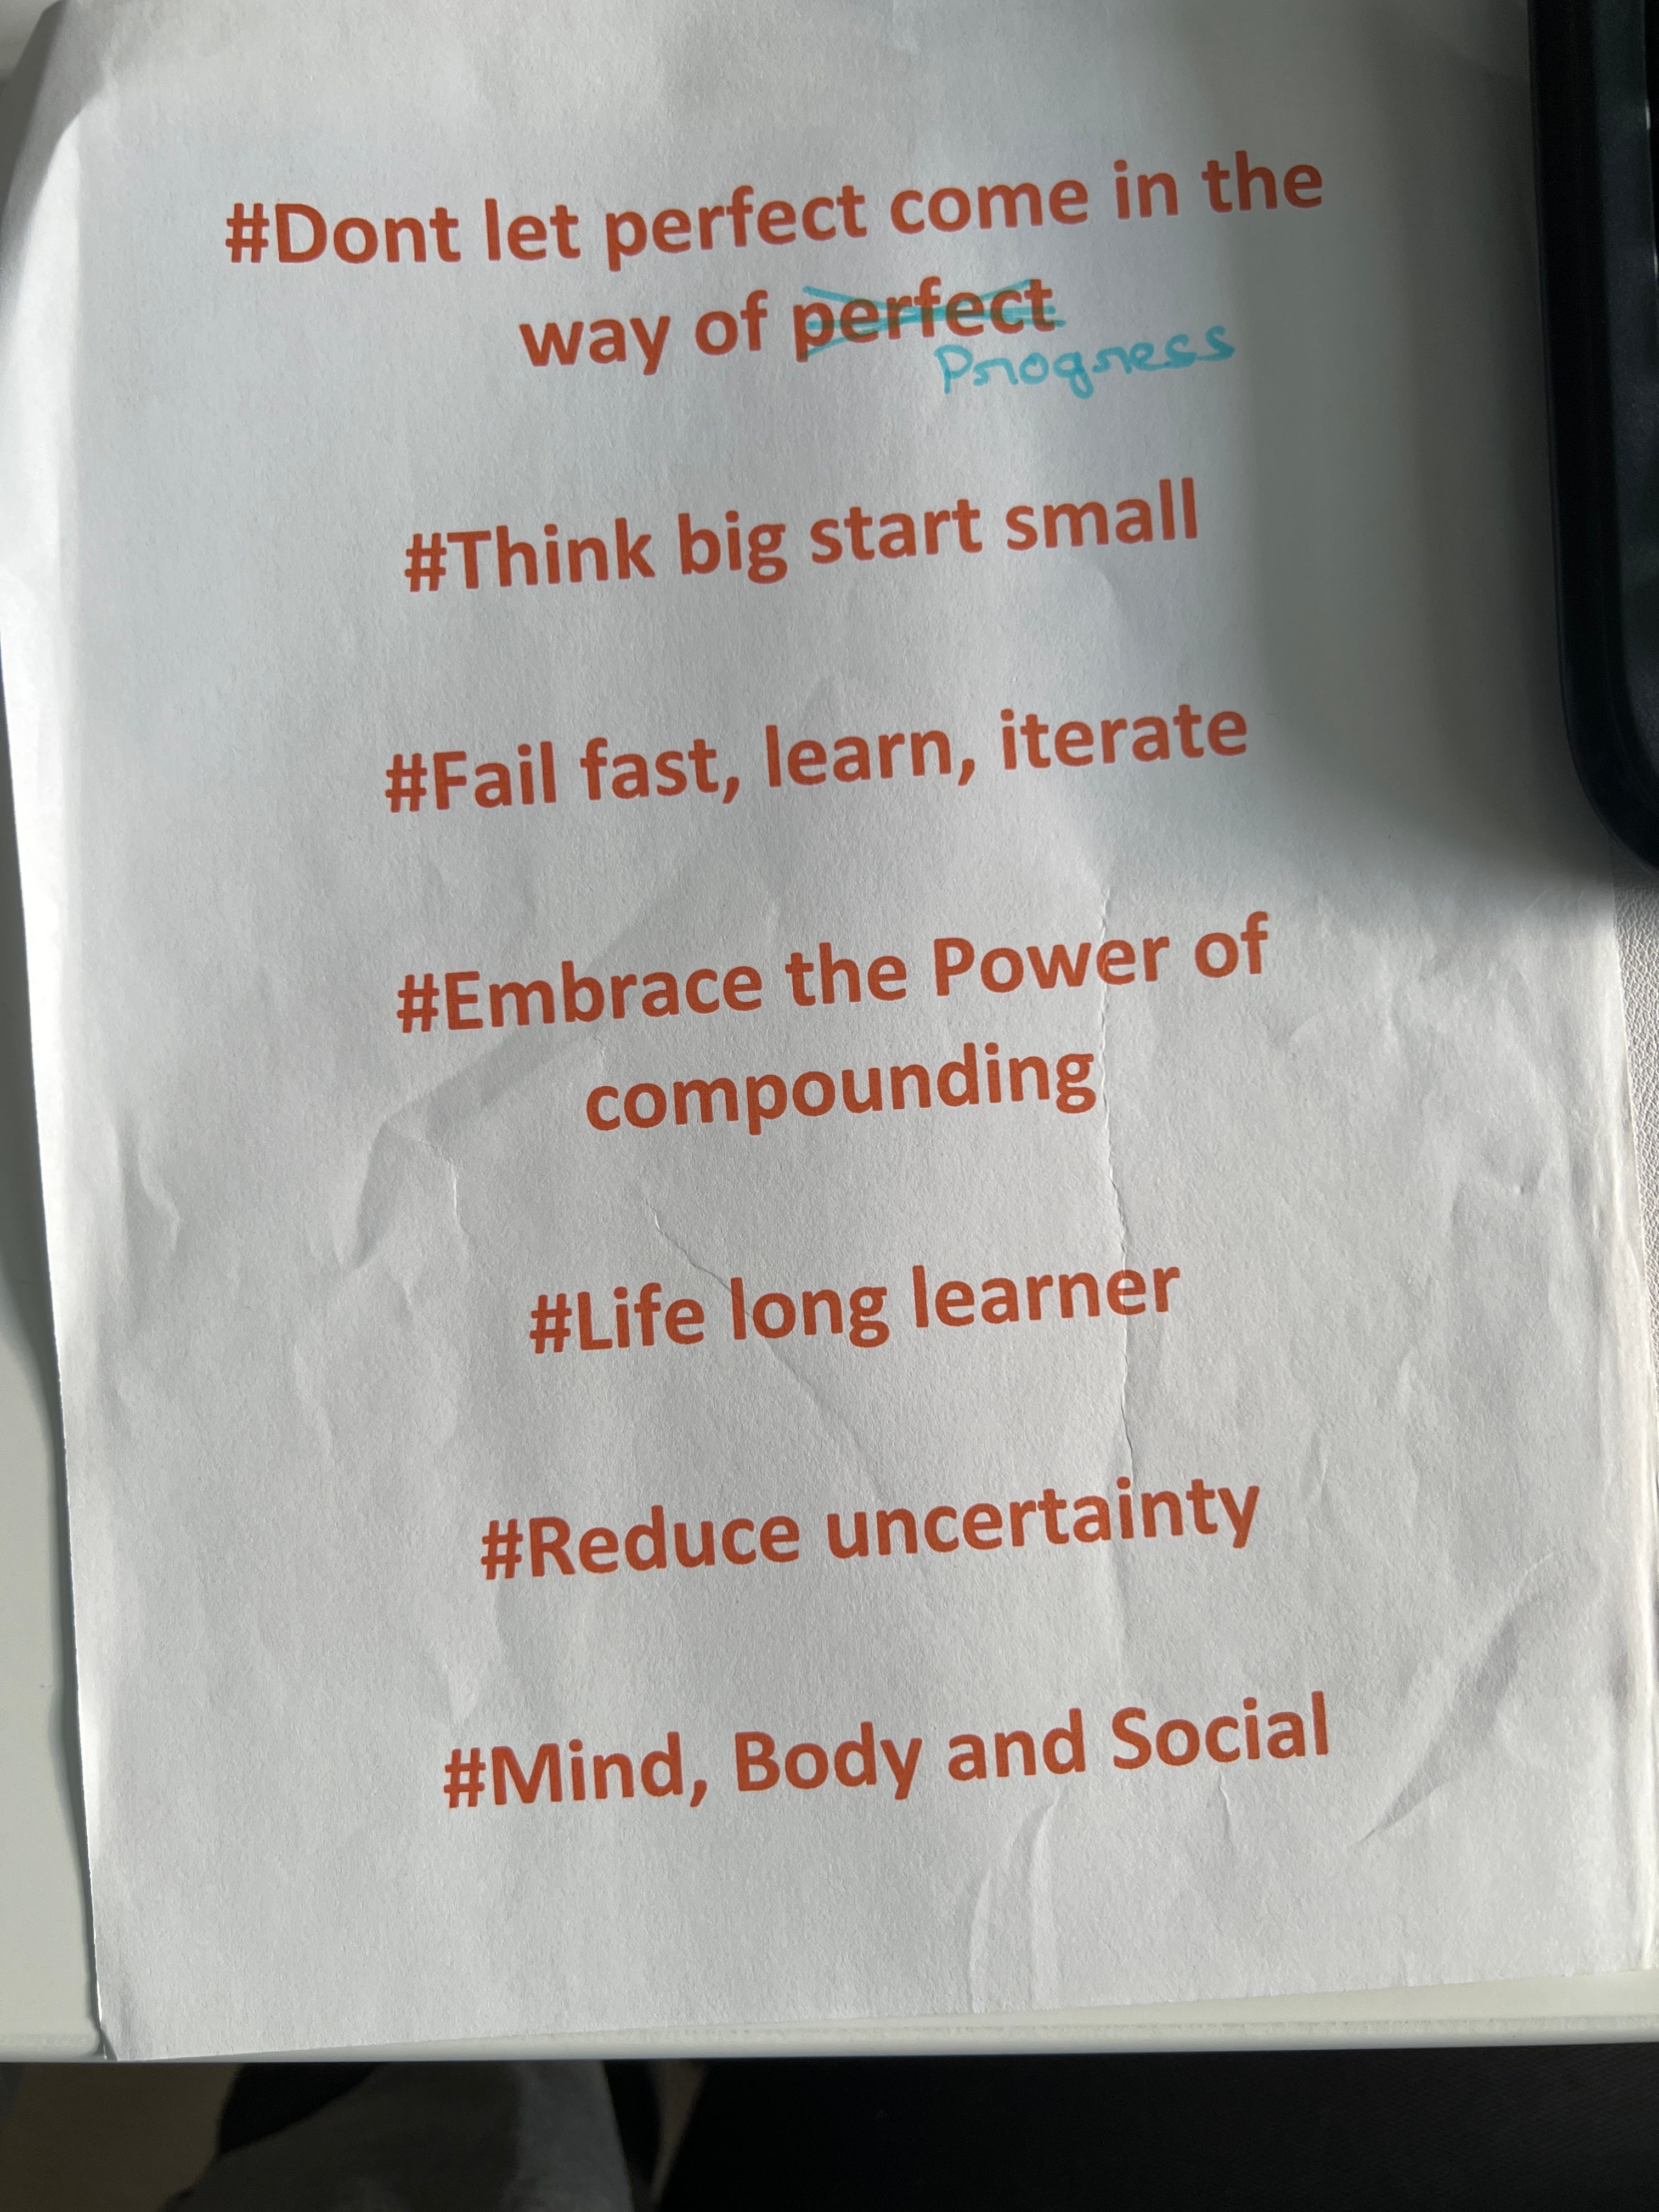 #Dont let perfect come in the
way of perfect
Progress
#Think big start small
#Fail fast, learn, iterate
#Embrace the Power of
compounding
#Life long learner
#Reduce uncertainty
#Mind, Body and Social